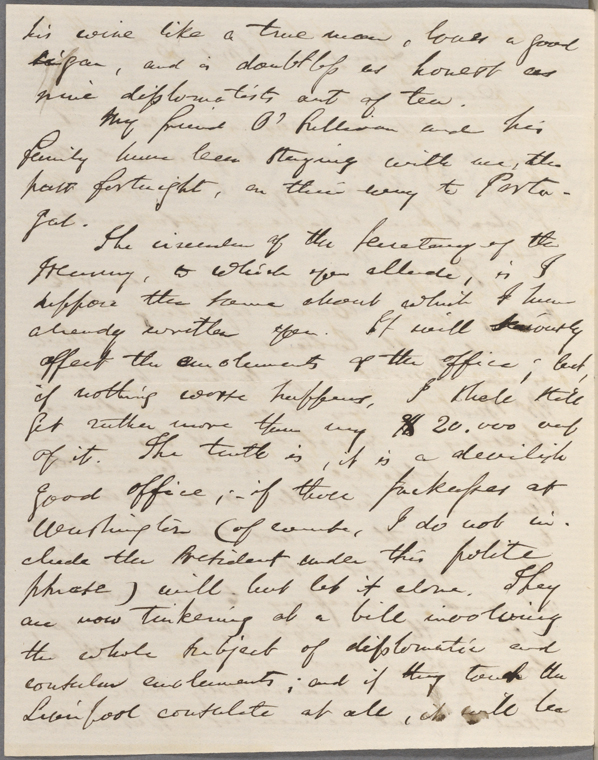 his wine like a true man, loves a good
sigar, and is doubtless as honest as
nine diplomatists out of ten.
My friend O'Sullivan and his
family have been staying with us, the
past fortnight, on their way to Portu-
gal.
The circular of the Secretary of the
Treasury, to which you allude, is I
suppose the same about which I have
already written you. It will seriously
affect the emoluments of the office; but,
if nothing worse happens, I shall still
get rather more than my $20.000 out
of it. The truth is, it is a devilish
good office;—if those jackasses at
Washington (of course, I do not in-
clude the President under this polite
phrase) will but let it alone. They
are now tinkering at a bill involving
the whole subject of diplomatic and
consular emoluments; and if they touch the
Liverpool consulate at all, it will be